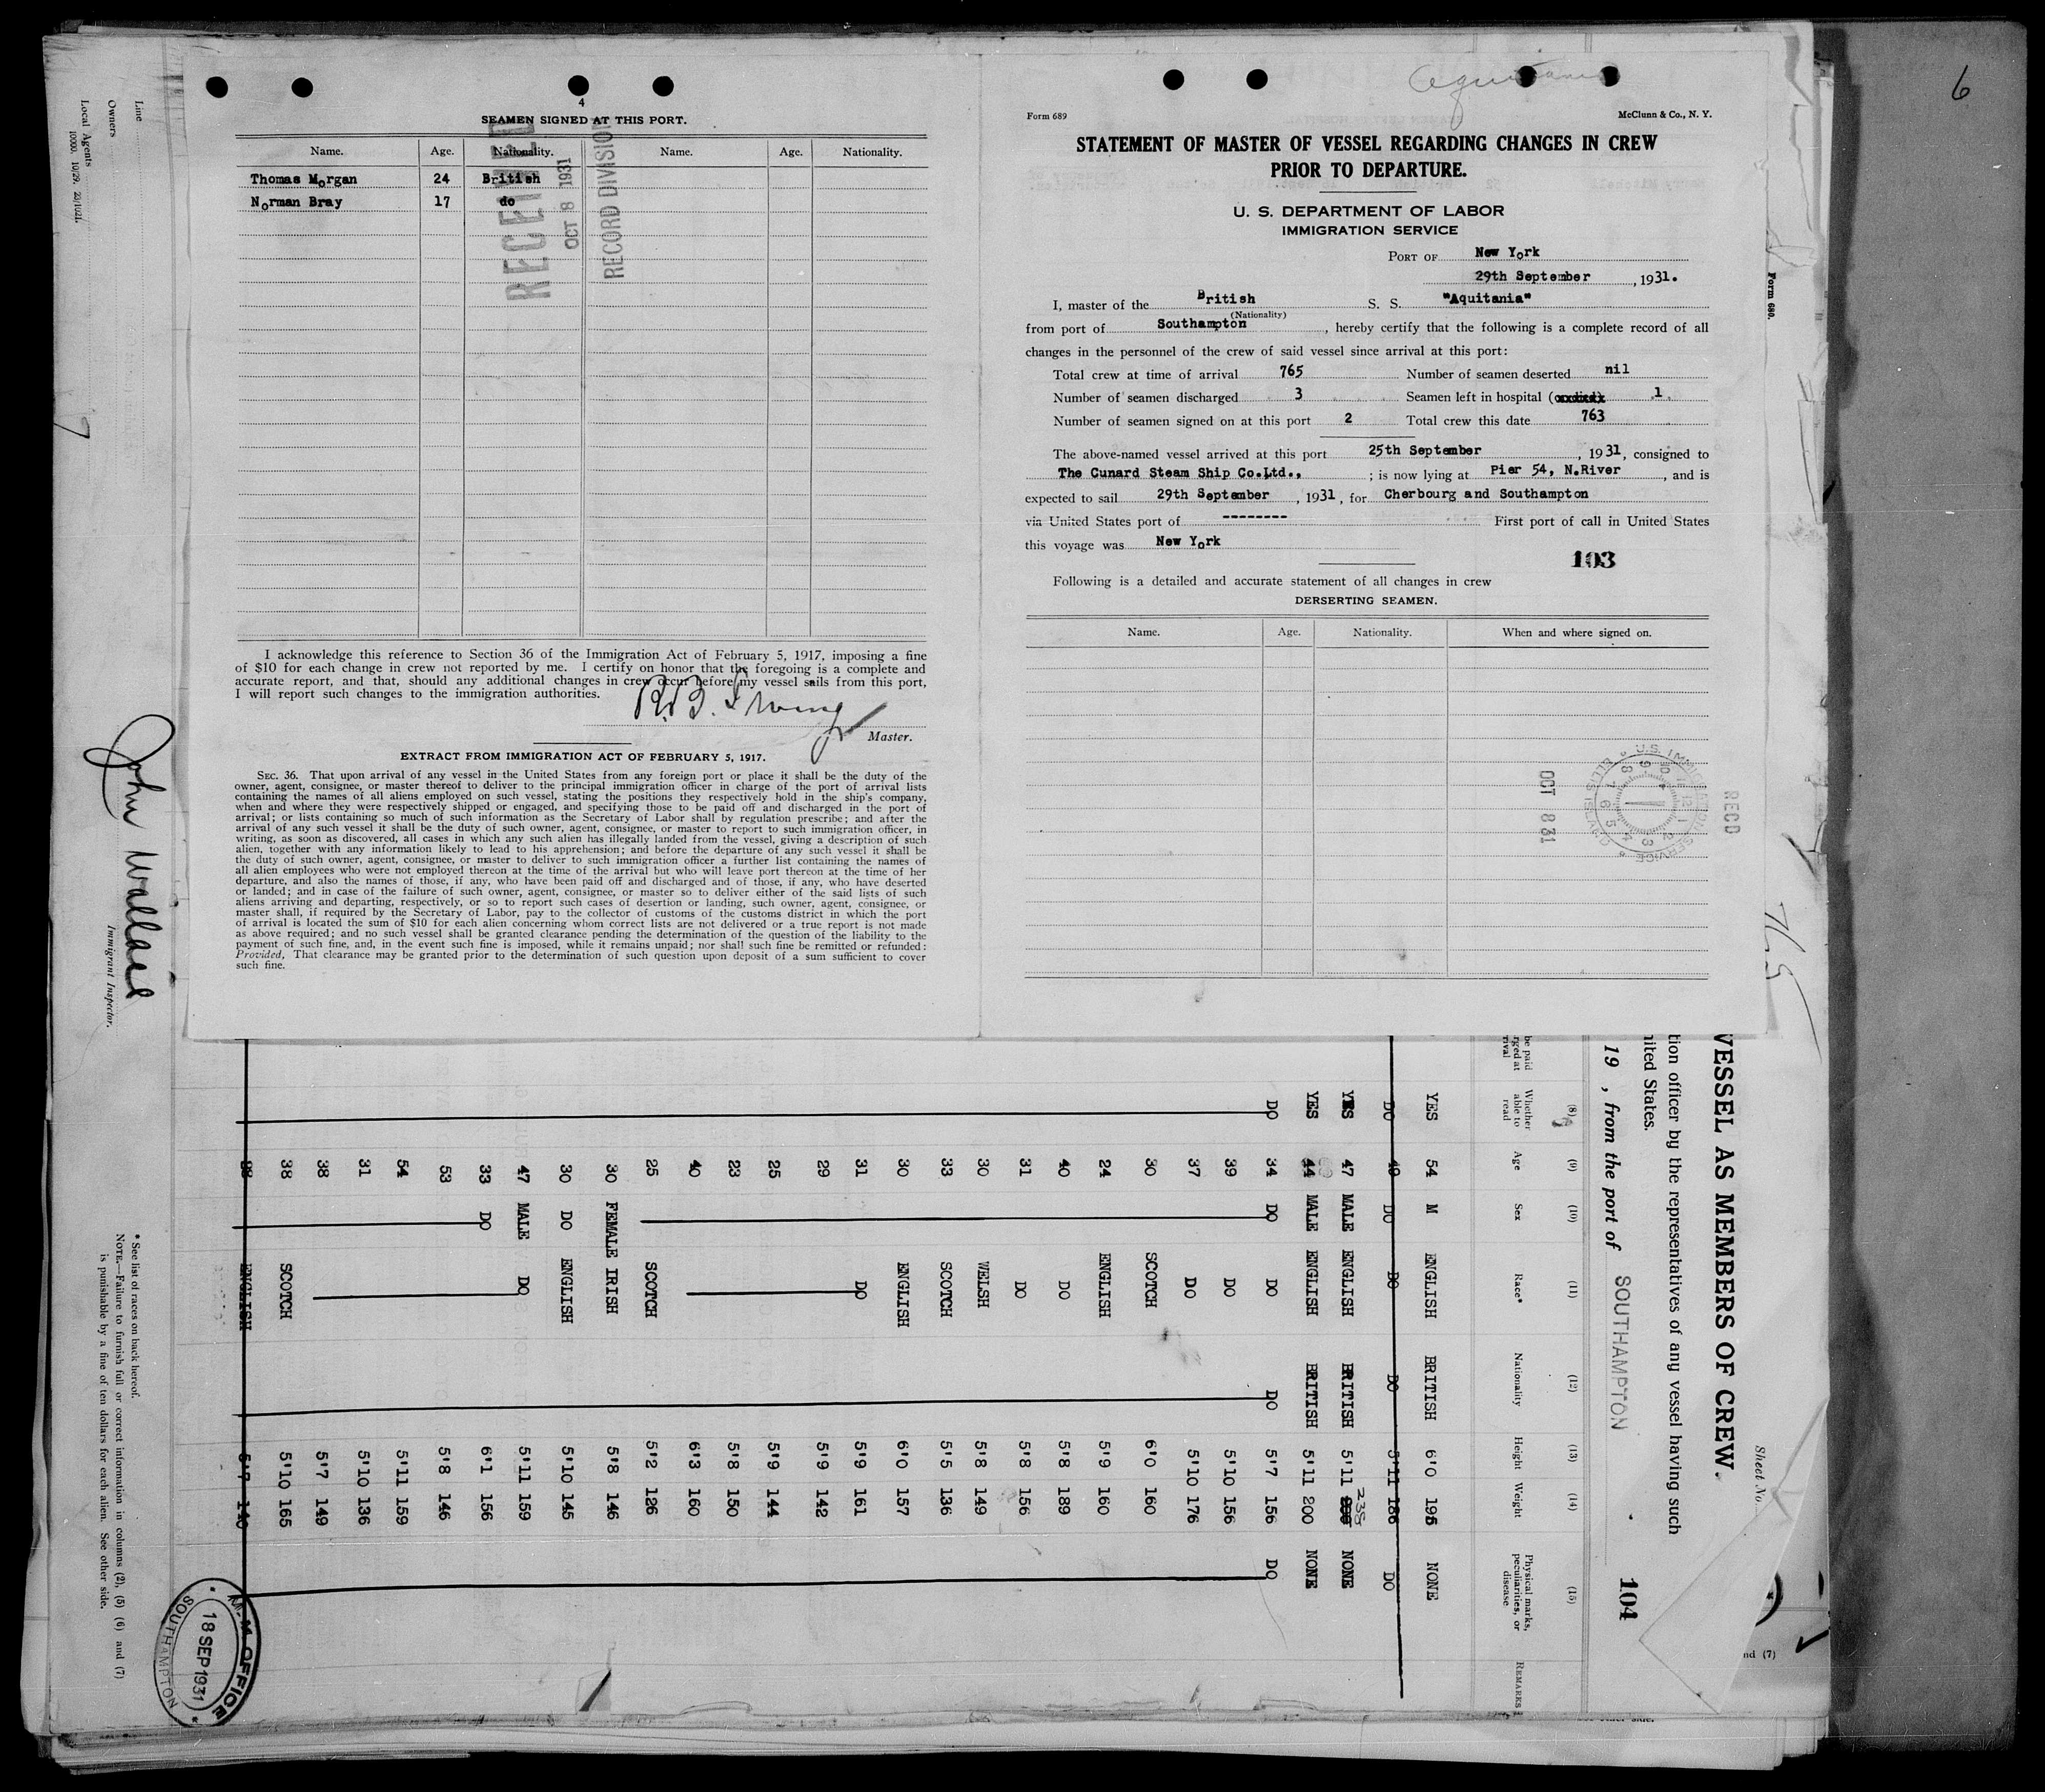 6
4
SEAMEN SIGNED AT THIS PORT.
Name. Age. Nationality. Name. Age. Nationality.
Thomas Morgan 24 British
Norman Bray 17 do
RECEIVED
OCT 8 1931
RECORD DIVISION
I acknowledge this reference to Section 36 of the Immigration Act of February 5, 1917, imposing a fine
of $10 for each change in crew not reported by me. I certify on honor that the foregoing is a complete and
accurate report, and that, should any additional changes in crew occur before my vessel sails from this port,
I will report such changes to the immigration authorities.
Master.
EXTRACT FROM IMMIGRATION ACT OF FEBRUARY 5, 1917.
SEC. 36. That upon arrival of any vessel in the United States from any foreign port or place it shall be the duty of the
owner, agent, consignee, or master thereof to deliver to the principal immigration officer in charge of the port of arrival lists
containing the names of all aliens employed on such vessel, stating the positions they respectively hold in the ship's company,
when and where they were respectively shipped or engaged, and specifying those to be paid off and discharged in the port of
arrival; or lists containing so much of such information as the Secretary of Labor shall by regulation prescribe; and after the
arrival of any such vessel it shall be the duty of such owner, agent, consignee, or master to report to such immigration officer, in
writing, as soon as discovered, all cases in which any such alien has illegally landed from the vessel, giving a description of such
alien, together with any information likely to lead to his apprehension; and before the departure of any such vessel it shall be
the duty of such owner, agent, consignee, or master to deliver to such immigration officer a further list containing the names of
all alien employees who were not employed thereon at the time of the arrival but who will leave port thereon at the time of her
departure, and also the names of those, if any, who have been paid off and discharged and of those, if any, who have deserted
or landed; and in case of the failure of such owner, agent, consignee, or master so to deliver either of the said lists of such
aliens arriving and departing, respectively, or so to report such cases of desertion or landing, such owner, agent, consignee, or
master shall, if required by the Secretary of Labor, pay to the collector of customs of the customs district in which the port
of arrival is located the sum of $10 for each alien concerning whom correct lists are not delivered or a true report is not made
as above required; and no such vessel shall be granted clearance pending the determination of the question of the liability to the
payment of such fine, and, in the event such fine is imposed, while it remains unpaid; nor shall such fine be remitted or refunded:
Provided, That clearance may be granted prior to the determination of such question upon deposit of a sum sufficient to cover
such fine.
Aquitania
Form 689 McClunn & Co., N. Y.
STATEMENT OF MASTER OF VESSEL REGARDING CHANGES IN CREW
PRIOR TO DEPARTURE.
U. S. DEPARTMENT OF LABOR
IMMIGRATION SERVICE
PORT OF New York
29th September , 1931.
I, master of the British S. S. "Aquitania"
(Nationality)
from port of Southampton , hereby certify that the following is a complete record of all
changes in the personnel of the crew of said vessel since arrival at this port:
Total crew at time of arrival 765 Number of seamen deserted nil
Number of seamen discharged 3 Seamen left in hospital ( 1
Number of seamen signed on at this port 2 Total crew this date 763
The above-named vessel arrived at this port 25th September , 1931, consigned to
The Cunard Steam Ship Co.Ltd., ; is now lying at Pier 54, N.River , and is
expected to sail 29th September , 1931, for Cherbourg and Southampton
via United States port of -------- First port of call in United States
this voyage was New York
103
Following is a detailed and accurate statement of all changes in crew
DERSERTING SEAMEN.
Name. Age. Nationality. When and where signed on.
OCT 8 31
U.S. IMMIGRATION SERVICE ELLIS ISLAND
RECD
Form 680.
Line
Owners
Local Agents
John Wallace
Immigrant Inspector.
* See list of races on back hereof.
NOTE.—Failure to furnish full or correct information in columns (2), (5) (6) and (7)
is punishable by a fine of ten dollars for each alien. See other side.
Sheet No.
VESSEL AS MEMBERS OF CREW.
tion officer by the representatives of any vessel having such
nited States.
19 , from the port of SOUTHAMPTON 104
(8) (9) (10) (11) (12) (13) (14) (15)
Whether able to read Age Sex Race* Nationality Height Weight Physical marks, peculiarities, or disease REMARKS
YES 54 M ENGLISH BRITISH 6'0 195 NONE
DO 49 DO DO DO 5'11 186 DO
YES 47 MALE ENGLISH BRITISH 5'11 238 NONE
YES 44 MALE ENGLISH BRITISH 5'11 200 NONE
DO 34 DO DO DO 5'7 156 DO
39 DO 5'10 156
37 DO 5'10 176
30 SCOTCH 6'0 160
24 ENGLISH 5'9 160
40 DO 5'8 189
31 DO 5'8 156
30 WELSH 5'8 149
33 SCOTCH 5'5 136
30 ENGLISH 6'0 157
31 DO 5'9 161
29 5'9 142
25 5'9 144
23 5'8 150
40 6'3 160
25 SCOTCH 5'2 126
30 FEMALE IRISH 5'8 146
30 DO ENGLISH 5'10 145
47 MALE DO 5'11 159
33 DO 6'1 156
53 5'8 146
54 5'11 159
31 5'10 136
38 5'7 149
38 SCOTCH 5'10 165
ENGLISH 5'7 140
M.M OFFICE
18 SEP 1931
SOUTHAMPTON
nd (7)